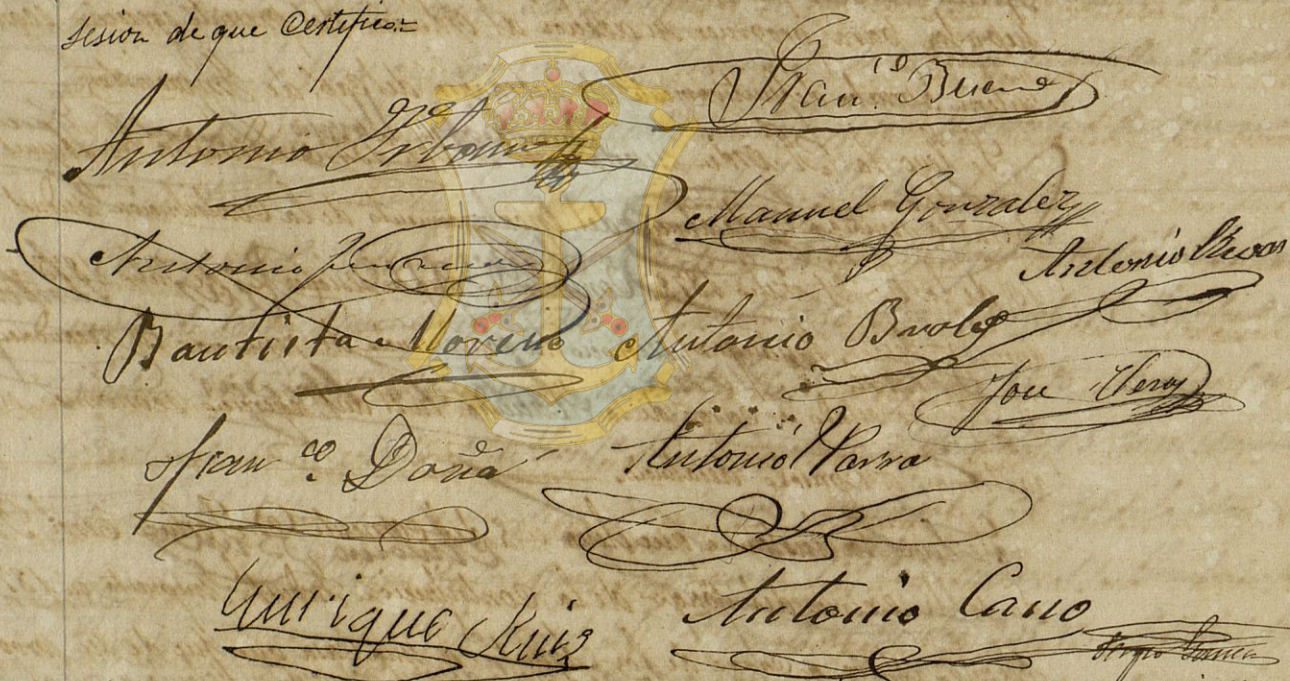 sesion de que Certifico=
Fran.co Bueno
Antonio
Manuel Gonzalez
Antonio
Antonio Rivas
Bautista Moreno
Antonio
Jose
Fran.co Doña
Antonio Parra
Enrique Ruiz
Antonio Cano
Sergio